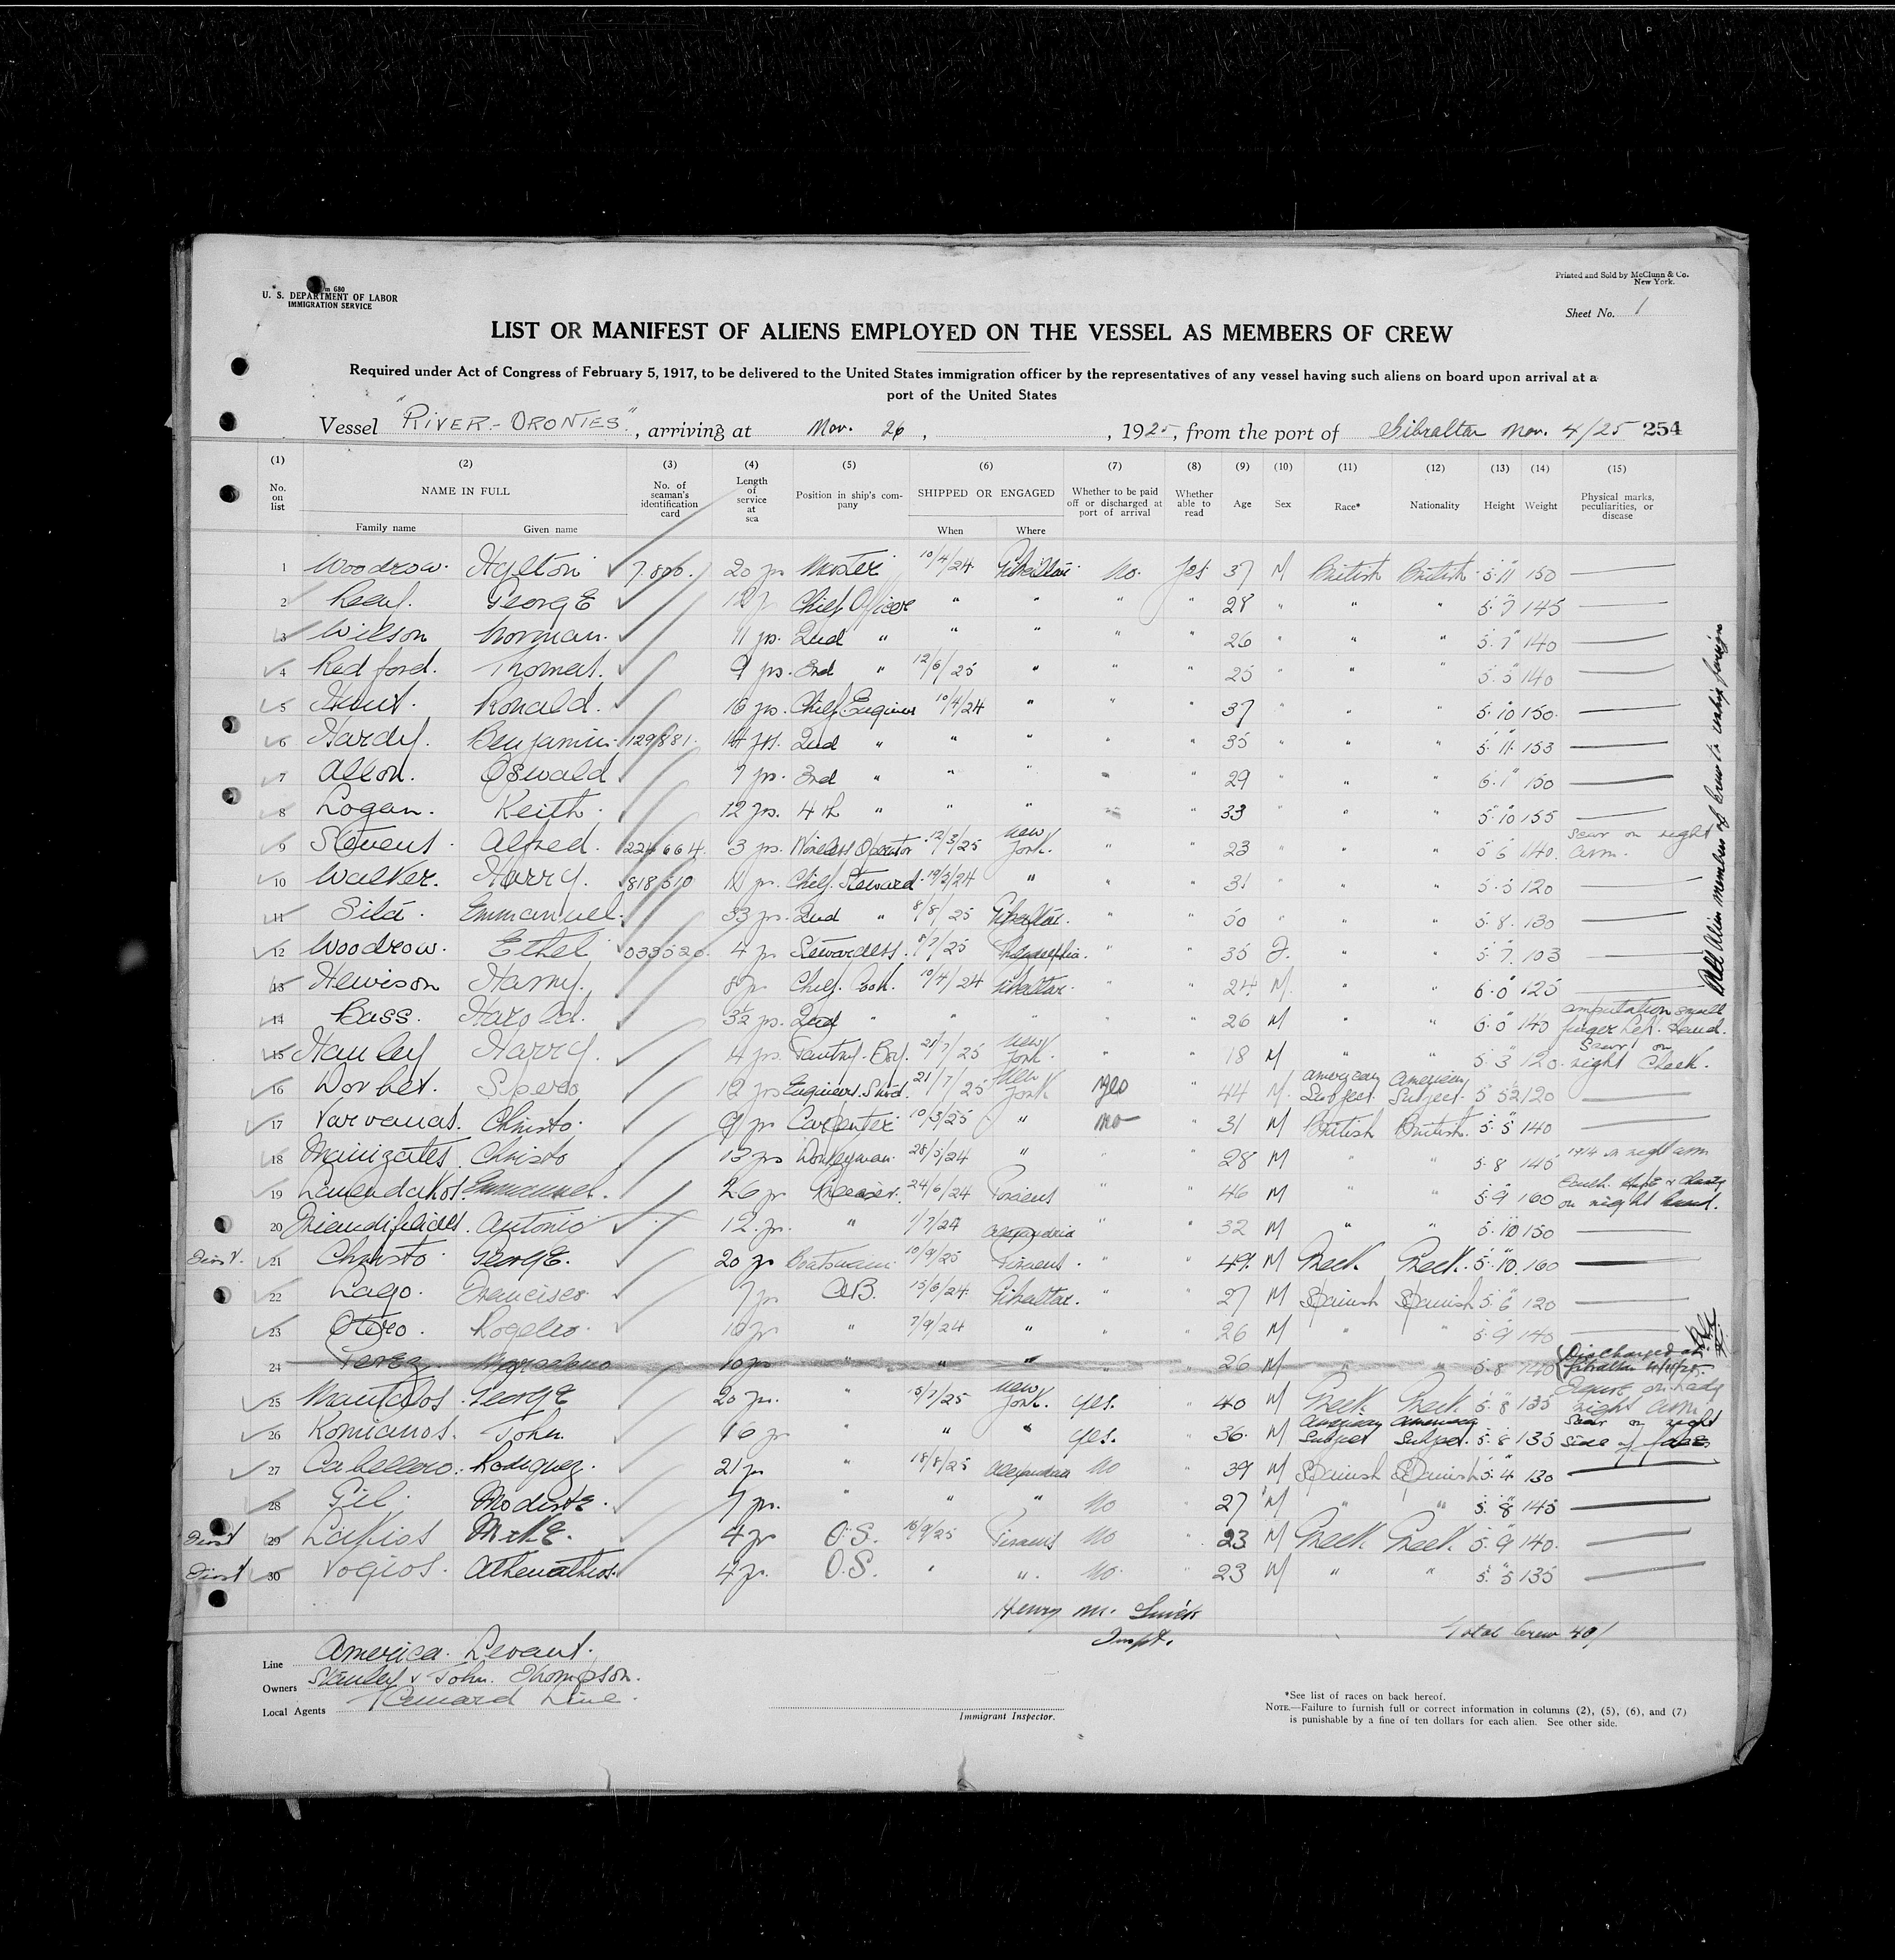 Form 680
U. S. DEPARTMENT OF LABOR
IMMIGRATION SERVICE
Printed and Sold by McClunn & Co.
New York.
Sheet No. 1
LIST OR MANIFEST OF ALIENS EMPLOYED ON THE VESSEL AS MEMBERS OF CREW
Required under Act of Congress of February 5, 1917, to be delivered to the United States immigration officer by the representatives of any vessel having such aliens on board upon arrival at a
port of the United States
Vessel "RIVER-ORONTES", arriving at Nov. 26, , 1925, from the port of Gibraltar Nov. 4/25 254
(1) (2) (3) (4) (5) (6) (7) (8) (9) (10) (11) (12) (13) (14) (15)
No. on list NAME IN FULL No. of seaman's identification card Length of service at sea Position in ship's company SHIPPED OR ENGAGED Whether to be paid off or discharged at port of arrival Whether able to read Age Sex Race* Nationality Height Weight Physical marks, peculiarities, or disease
Family name Given name When Where
1 Woodrow. Hylton 7.800. 20 yrs Master 10/4/24 Gibraltar No. Yes 37 M British British 5.11 150
2 George Chief Officer " " " " 28 " " " 5.7 145
3 Wilson Norman. 11 yrs. 2nd " " " " " 26 " " " 5.7 140
4 Redford. Thomas. 9 yrs. 3rd " 12/6/25 " " " 25 " " " 5.5 140
5 Hunt. Ronald. 16 yrs. Chief Engineer 10/4/24 " " " 37 " " " 5.10 150
6 Hardy. Benjamin. 129881. 14 yrs. 2nd " " " " " 35 " " " 5.11 153
7 Oswald 7 yrs. 3rd " " " " " 29 " " " 6.1 150
8 Logan. Keith. 12 yrs. 4th " " " " " 33 " " " 5.10 155
9 Stevens. Alfred. 224664. 3 yrs. Wireless Operator 12/3/25 New York. " " 23 " " " 5 6 140. Scar on right arm.
10 Walker. Harry. 818510 Chief Steward 19/3/24 " " " 31 " " " 5.5 120
11 Silá. Emmanuel. 33 yrs. 2nd " 8/8/25 Gibraltar. " " 50 " " " 5.8. 130
12 Woodrow. Ethel 033520 4 yrs Stewardess. 8/7/25 Philadelphia. " " 35 F. " " 5.7. 103
13 Hewison Harry. 8 yrs Chief Cook. 10/4/24 Gibraltar. " " 24 M. " " 6.0 125
14 Bass. Harold. 3½ yrs. 2nd " " " " " 26 M " " 6.0 140 amputation small finger Left. Hand.
15 Hanley Harry. 4 yrs. Pantry. Boy. 21/7/25 New York. " " 18 M " " 5 3 120 Scar on right Cheek.
16 Spero 12 yrs Engineers. Stwd. 21/7/25 New York Yes " 44 M. American Subject. American Subject. 5 5½ 120
17 Varvanas. Christo. 9 yrs Carpenter 10/3/25 " no " 31 M British British. 5.5 140
18 Christo 13 yrs Donkeyman. 28/5/24 " " " 28 M " " 5.8 145 1914 on right arm
19 Emmanuel. 26 yr 24/6/24 Piraeus " " 46 M " " 5.9 160 on right hand.
20 Antonio 12. yr. " 1/7/24 Alexandria " " 32 M " " 5.10 150
21 Christo George. 20 yr Boatswain 10/9/25 Piraeus. " " 49. M Greek. Greek. 5.10. 160
22 Lago. Francisco. 7 yr A.B. 15/6/24 Gibraltar. " " 27 M Spanish Spanish 5.6 120
23 Otero. Rogelio. 10 yr " 7/9/24 " " " 26 M " " 5.9 140
24 Perez 10 yr " " " 26 M " " 5.8 140 Discharged at Gibraltar
25 George 20 yr. " 15/7/25 New York. Yes. 40 M Greek Greek 5.8 135 right arm
26 Romianos. John. 16 yr " " " Yes. 36. M American Subject American Subject. 5.8 135 Scar on right side of face
27 Caballero. Rodriguez. 21 yr " 18/8/25 Alexandria No 39 M Spanish Spanish 5.4 130
28 Gil. Modiste. 7 yr. " " " No " 27 M " " 5.8 145
29 Lakios Mike. 4 yr O.S. 10/9/25 Piraeus No 23 M Greek Greek 5.9 140.
30 Vogios. Athenathios. 4 yr. O.S. " " No. " 23 M " " 5.5 135
All Alien members of Crew to reship foreign
Henry M.
Inspt.
Total Crew 40
Line America. Levant.
Owners Stanley & John. Thompson.
Local Agents Line.
Immigrant Inspector.
*See list of races on back hereof.
NOTE.—Failure to furnish full or correct information in columns (2), (5), (6), and (7)
is punishable by a fine of ten dollars for each alien. See other side.